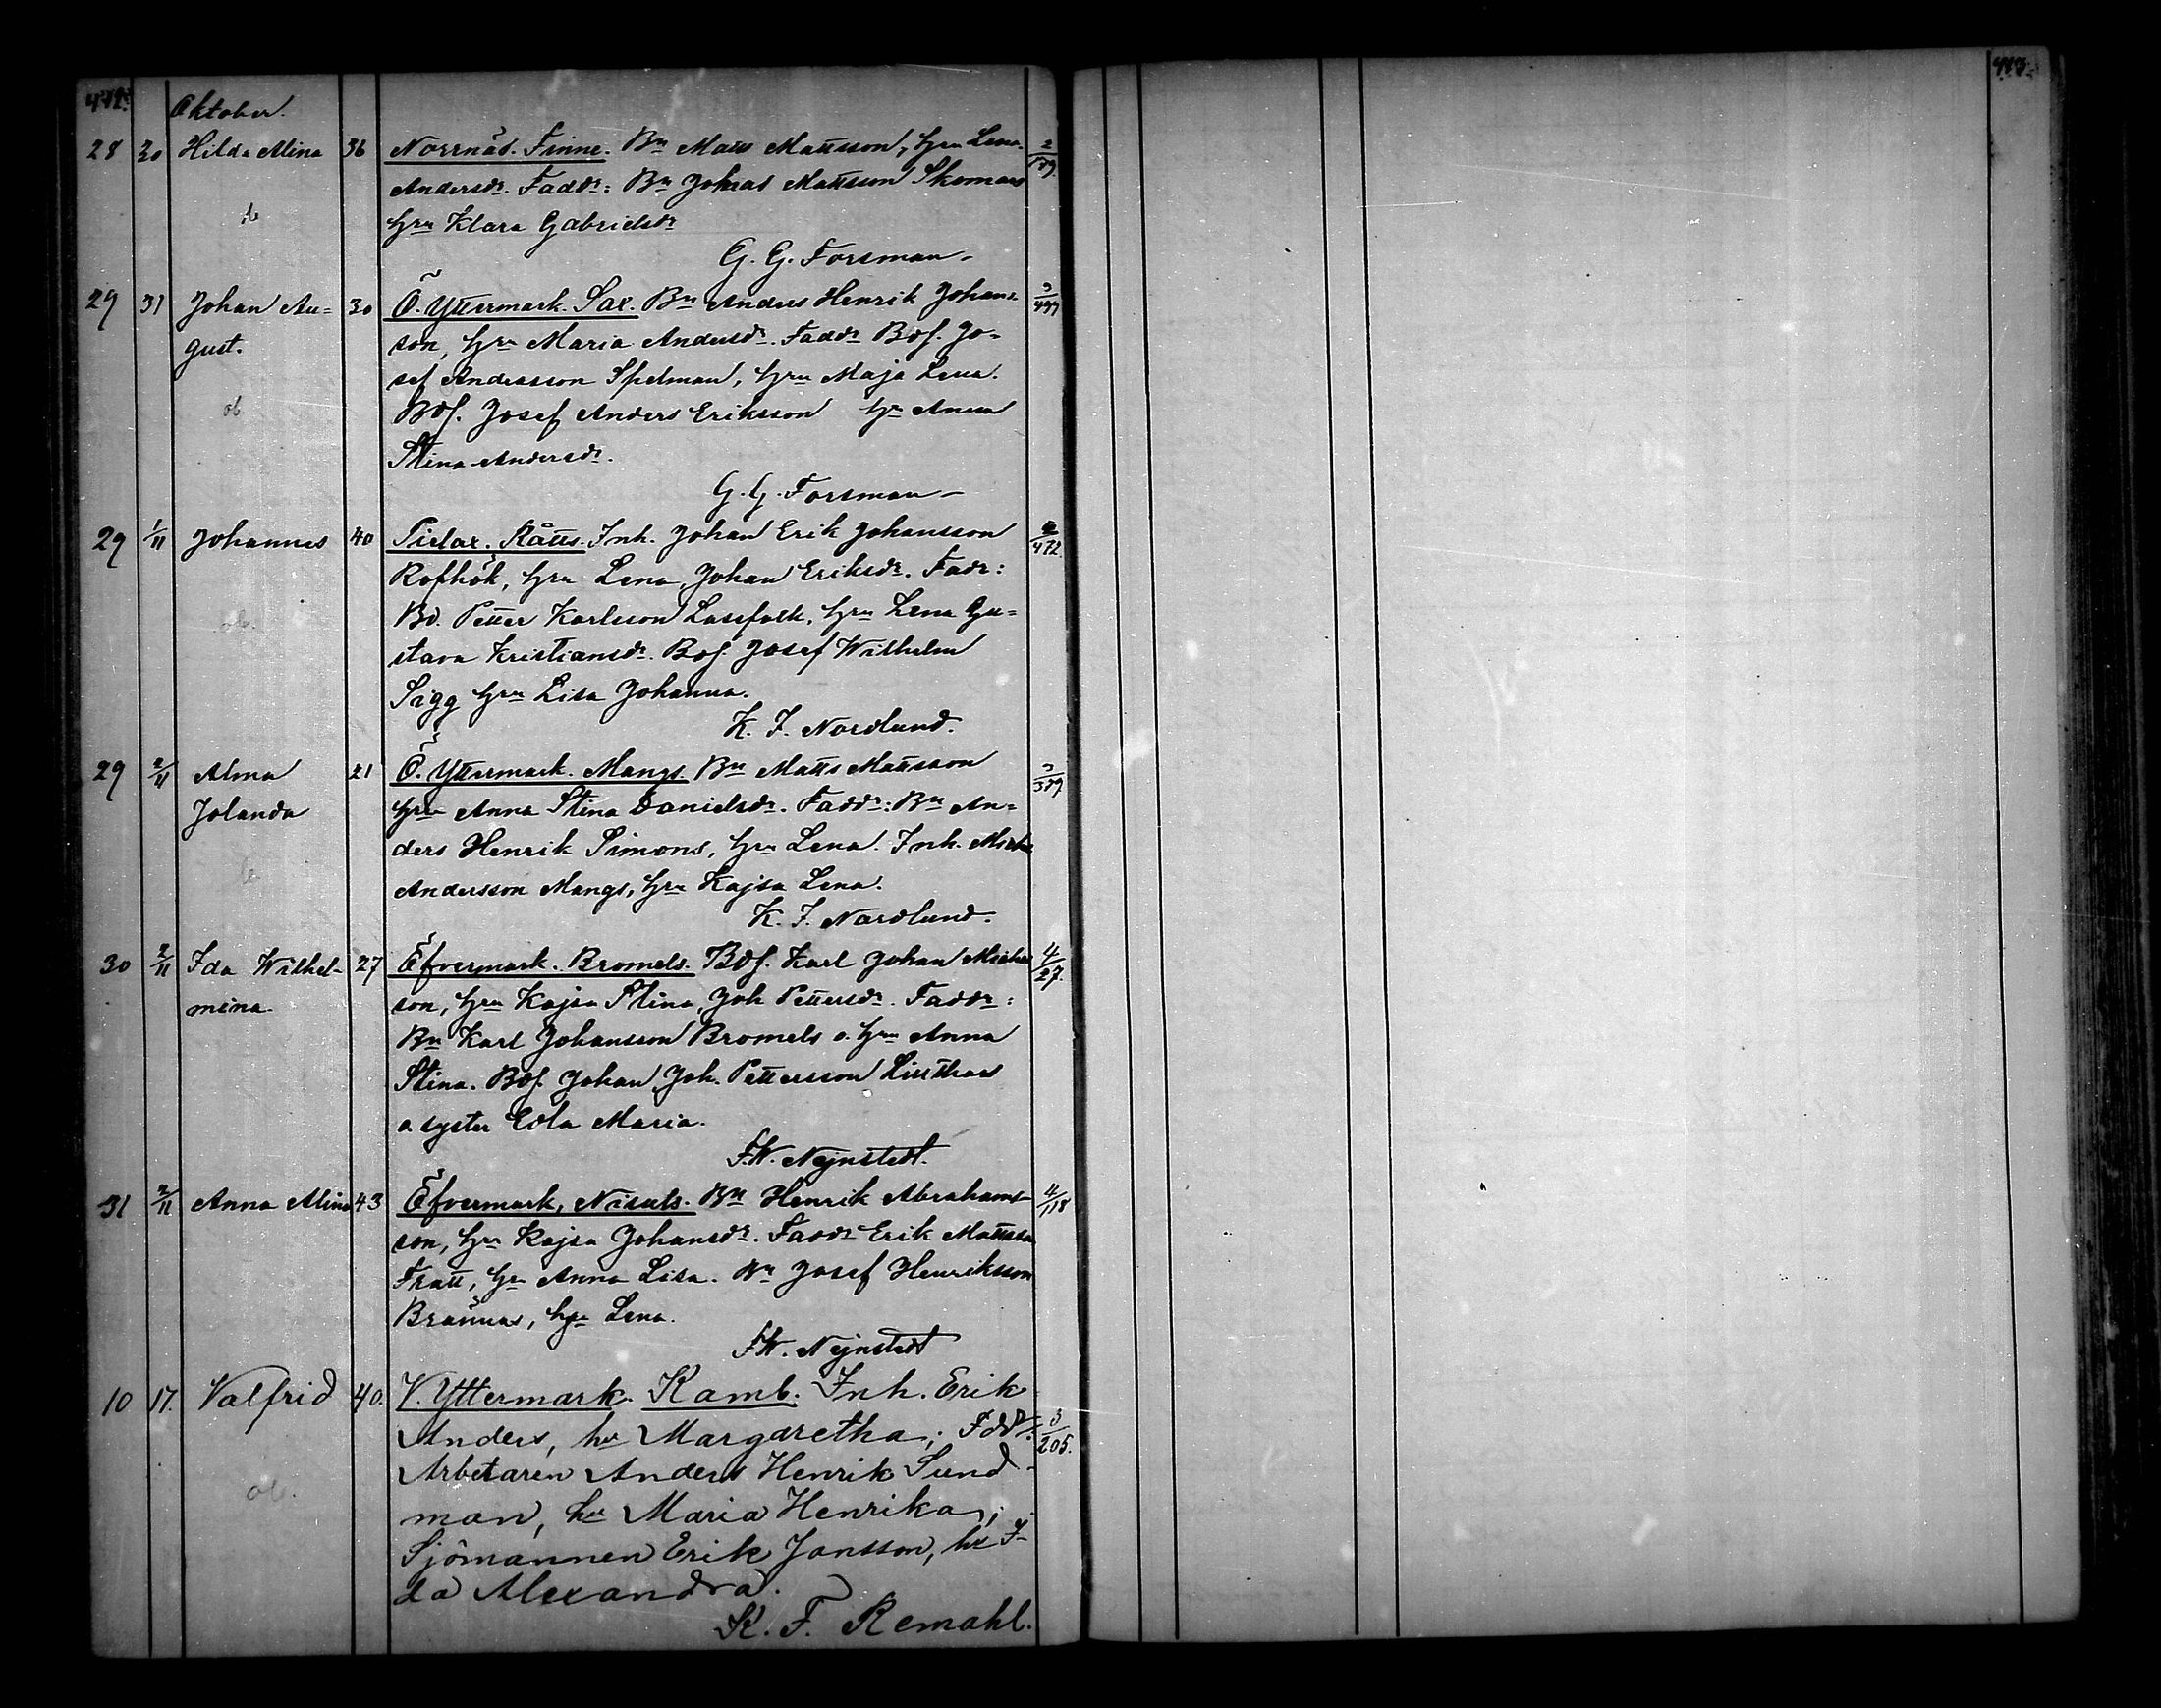 472.
413.
Oktober.
28 30 Hilda Alina 36 Norrnäs. Finne. Bn Matts Mattsson, hru Lena 2/179.
Andersdr. Faddr: Bn Johras Mattsson Skomars
b
hru Klara Gabrielsdr
G. G. Forsman
29 31 Johan Au= 30 Ö. Yttermark. Sax. Bn Anders Henrik Johans= 3/499
gust. son, hru Maria Andersdr. Faddr Bdf. Jo=
sef Andersson Spelman, hru Maja Lena.
ob Bdf. Josef Anders Eriksson hr Anna
Stina Andersdr.
G. G. Forsman
29 1/11 Johannes 40 Pielax. Rätts. Inh. Johan Erik Johansson /472.
Rofhök, hru Lena Johan Eriksdr. Fadr:
ob. Bd. Petter Karlsson Lassfolk, hru Lena Gu=
stava Kristiansdr. Bdf. Josef Wilhelm
Sigg hru Lisa Johanna.
K. J. Nordlund.
29 2/11 Alma 21 Ö. Yttermark. Mangs. Bn Matts Mattsson 3/389
Jolanda hru Anna Stina Danielsdr. Faddr: Bn An=
ders Henrik Simons, hru Lena. Inh.
b Andersson Mangs, hru Kajsa Lena.
K. J. Nordlund.
30 2/11 Ida Wilhel- 27 Öfvermark. Bromels. Bdf. Karl Johan Michels 4/27.
mina. son, hru Kajsa Stina Joh Pettersdr. Faddr:
Bn Karl Johansson Bromels o. hru Anna
Stina. Bdf Johan Joh. Pettersson
o. syster Edla Maria.
F.W. Nejnstedt.
31 2/11 Anna Alina 43 Öfvermark, Nisuls. Bn Henrik Abrahams- 4/118
son, hru Kajsa Johansdr. Faddr Erik Mattsson
Fratt, hr Anna Lisa. Bn Josef Henriksson
Brännas, hru Lena.
F.W. Nejnstedt
10 17. Valfrid 40. V. Yttermark. Kamb. Inh. Erik
Anders, hu Margaretha; Fddr: 3/205.
Arbetaren Anders Henrik Sund-
ob. man, hu Maria Henrika;
Sjömannen Erik Jansson, hu I-
da Alexandra.
K. F. Remahl.